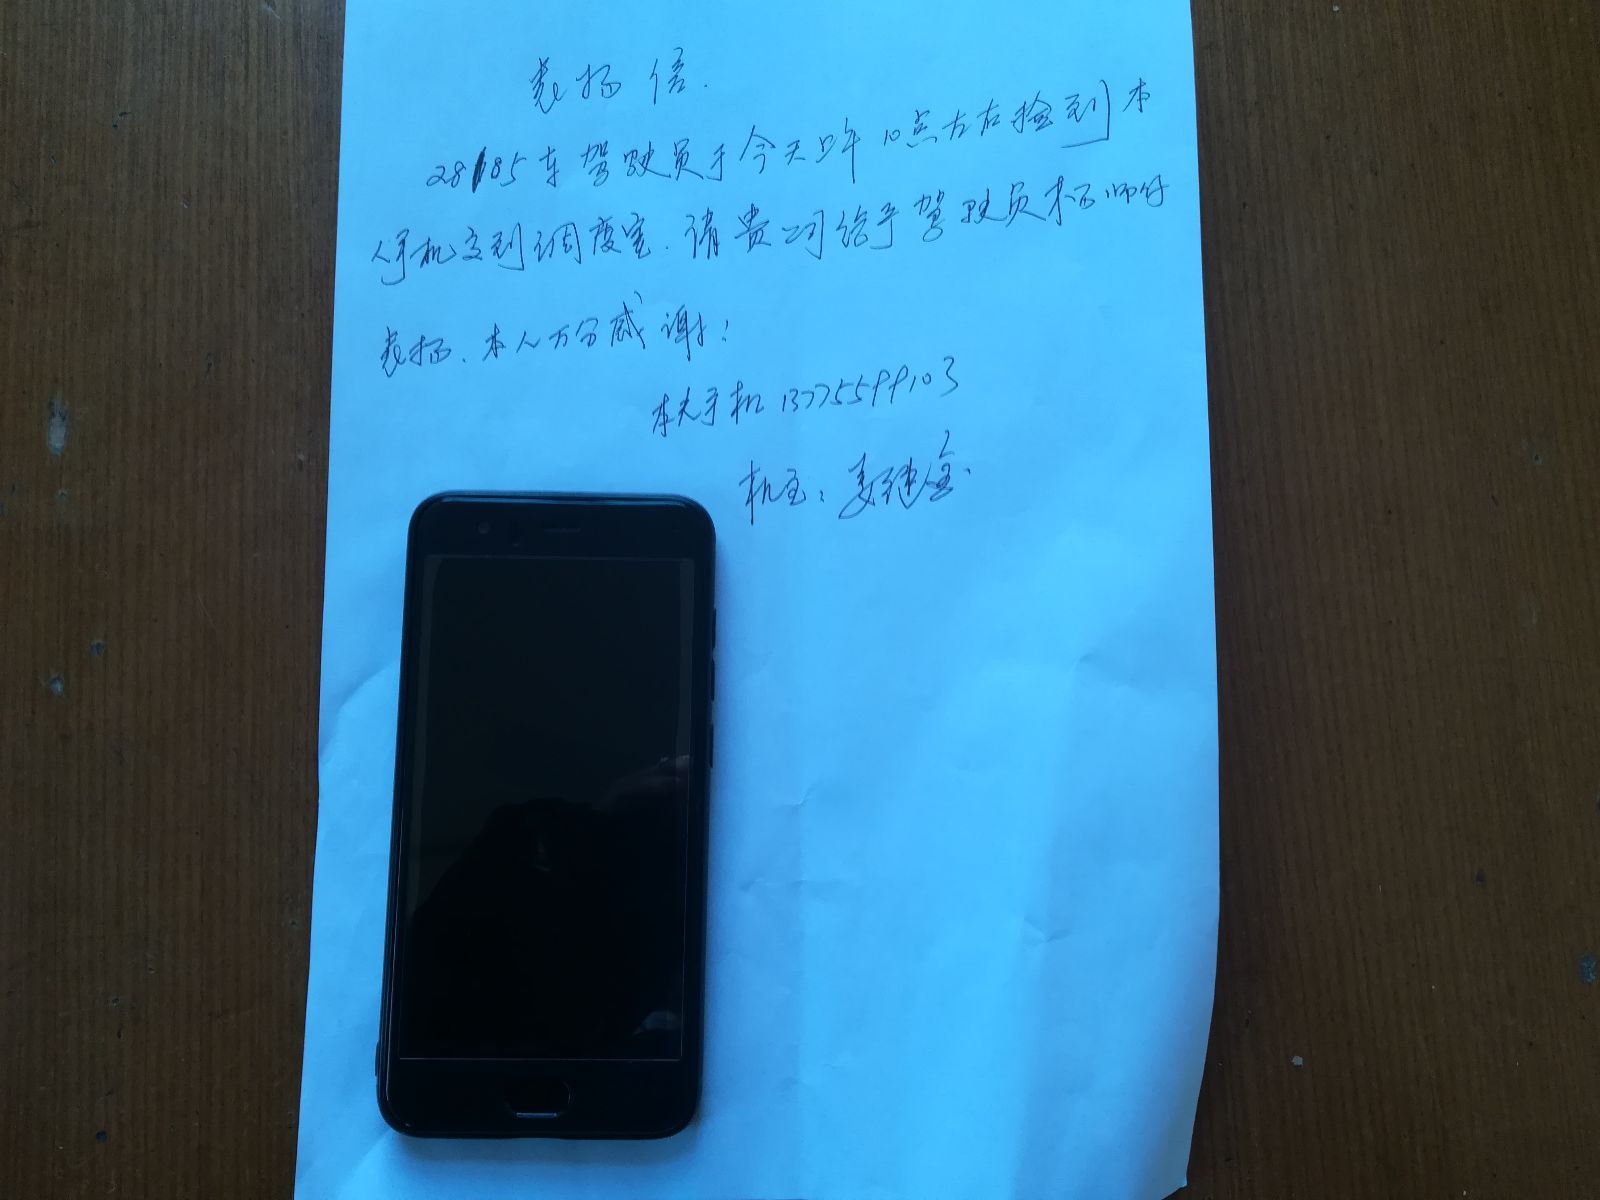 表扬信.
28185车驾驶员于今天上午10点左右捡到本
人手机交到调度室.请贵公司给予驾驶员杨师付
表扬.本人万分感谢!
本人手机13775599103
机主:姜继金